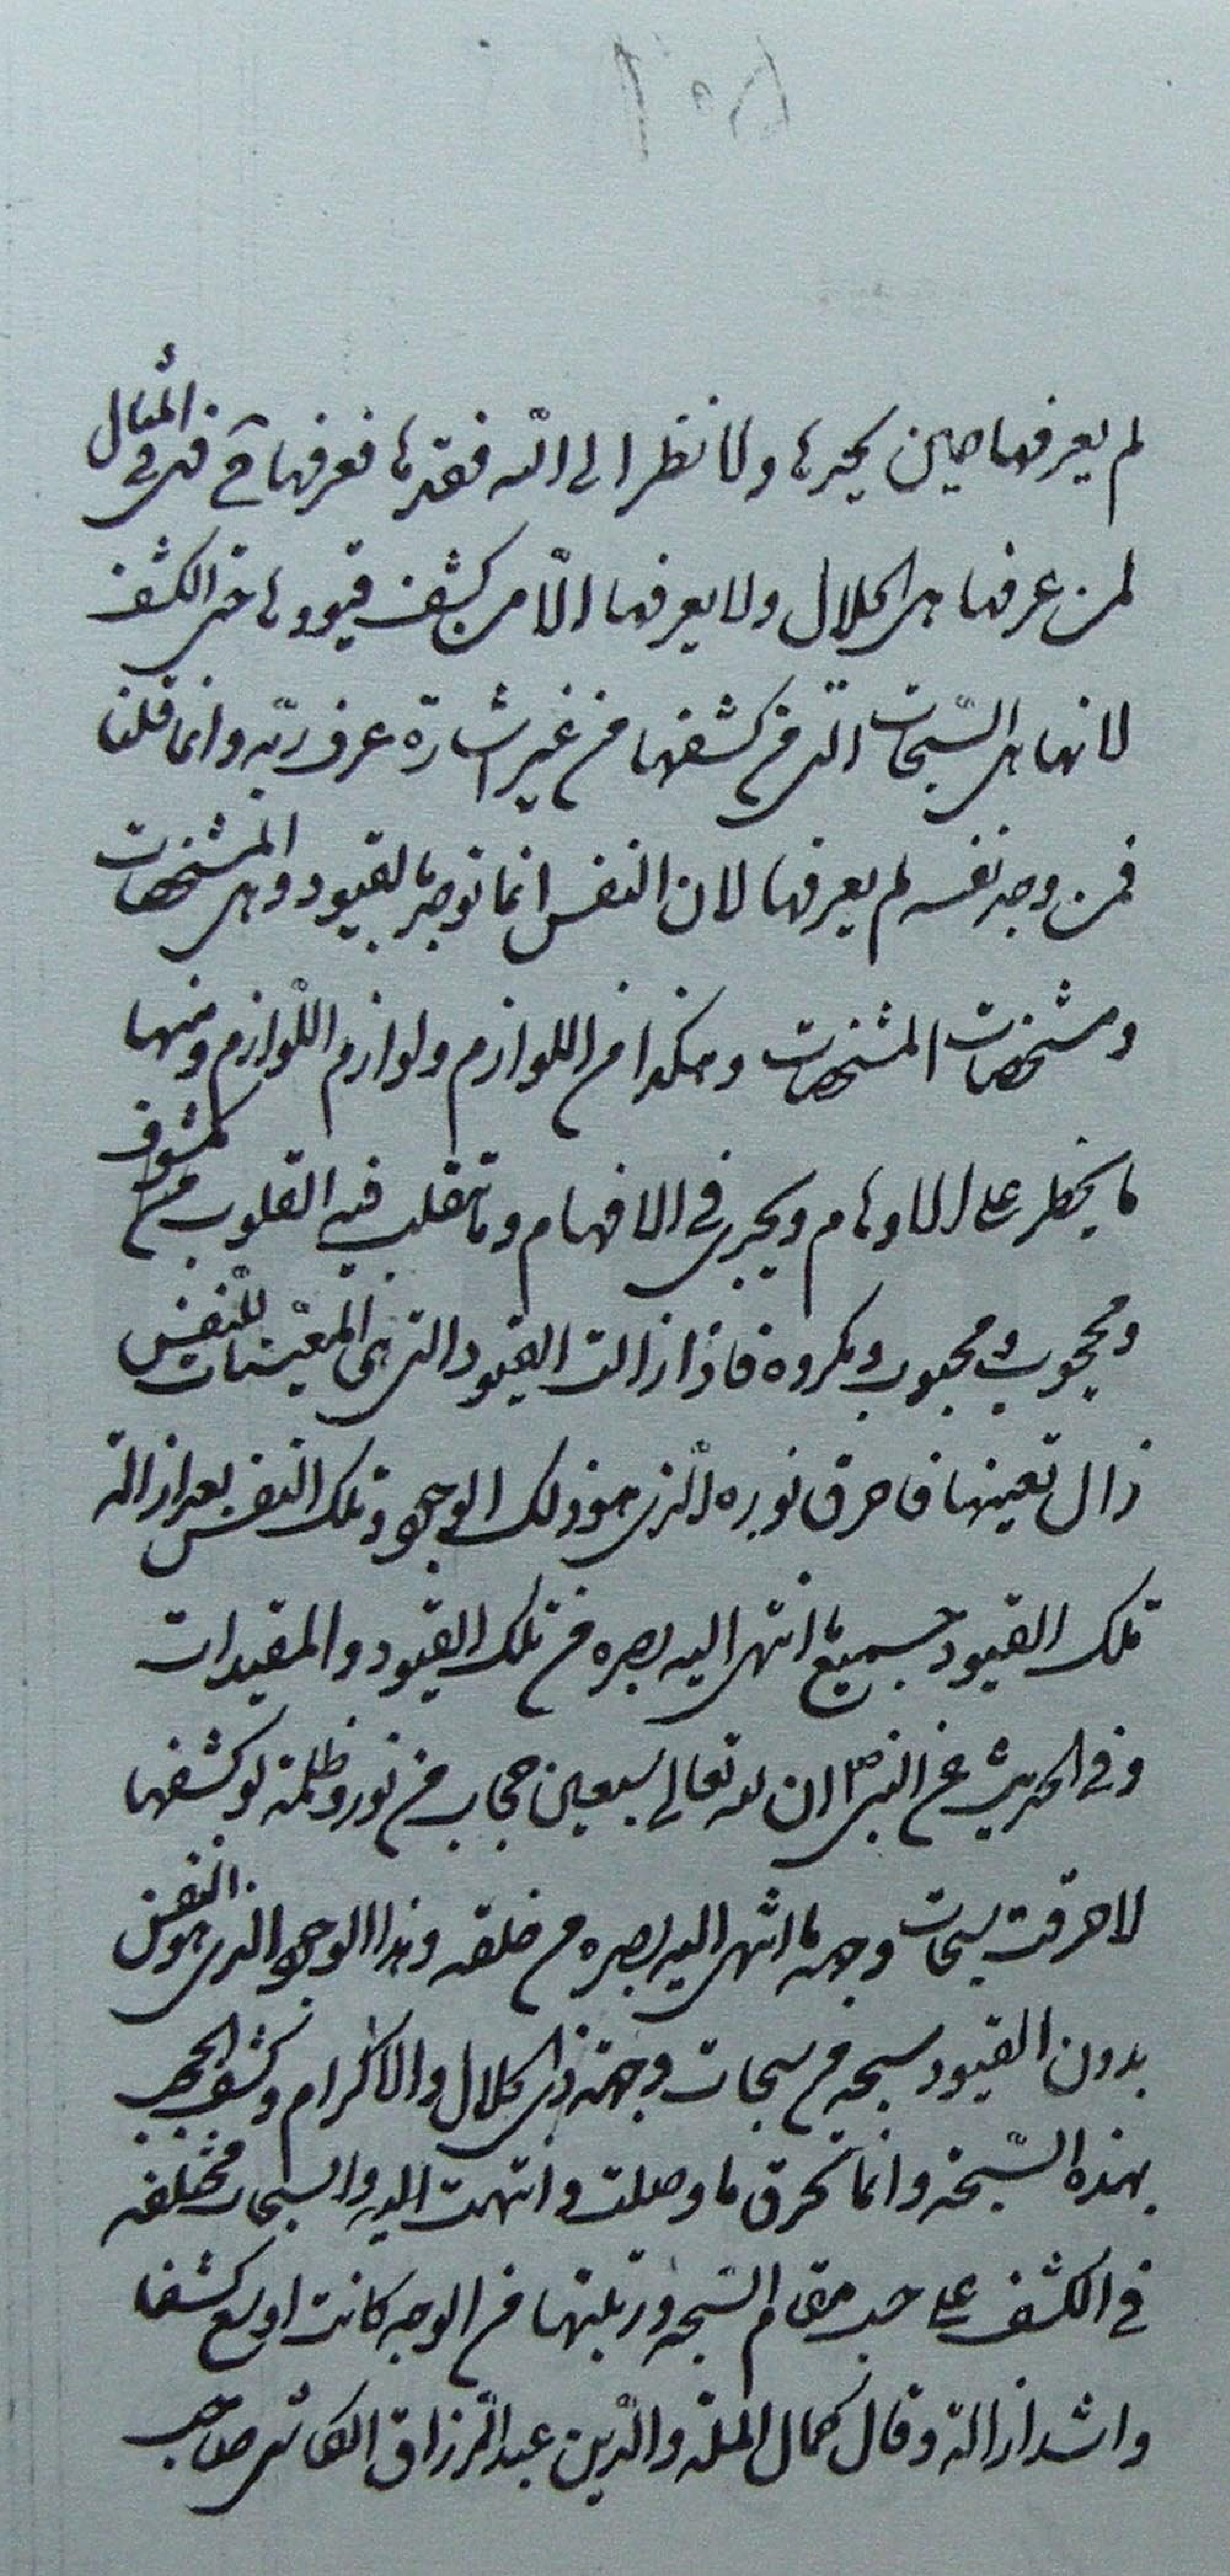 لم يعرفها حين يجدها ولا نظر الى الله فقدها فعرفها فهى فى المثال
لمن عرفها هى الجلال ولا يعرفها الّا من كشف قيودها حتى الكشف
لانها هى السّبحات التى من كشفها من غير اشارة عرف ربّه وانما قلنا
فمن وجد نفسه لم يعرفها لان النفس انما توجد بالقيود وهى المشخصات
ومشخصات المشخصات وهكذا من اللوازم ولوازم اللّوازم ومنها
ما يخطر على الاوهام ويجرى فى الافهام وما تتقلب فيه القلوب من مكشوف
ومحجوب ومحبوب ومكروه فاذا زالت القيود التى هى المعيّنات للنّفس
زال تعينها فاحرق نوره الّذى هو ذلك الوجود وتلك النفس بعد ازالة
تلك القيود جميع ما انتهى اليه بصره من تلك القيود والمقيدات
وفى الحديث عن النبى ص ان لله تعالى سبعين حجاب من نور وظلمة لو كشفها
لاحرقت سبحات وجهه ما انتهى اليه بصره من خلقه وهذا الوجود الذى هو النفس
بدون القيود سبحه من سبحات وجهه ذى الجلال والاكرام وكشف الحجب
بهذه السّبحة وانما تحرق ما وصلت وانتهت اليه والسبحات مختلفه
فى الكشف على حسب مقام السّبحه ورتبتها من الوجه كانت اوسع كشفا
واشد ازالة وقال كمال الملة والدّين عبد الرّزاق الكاشى صاحب